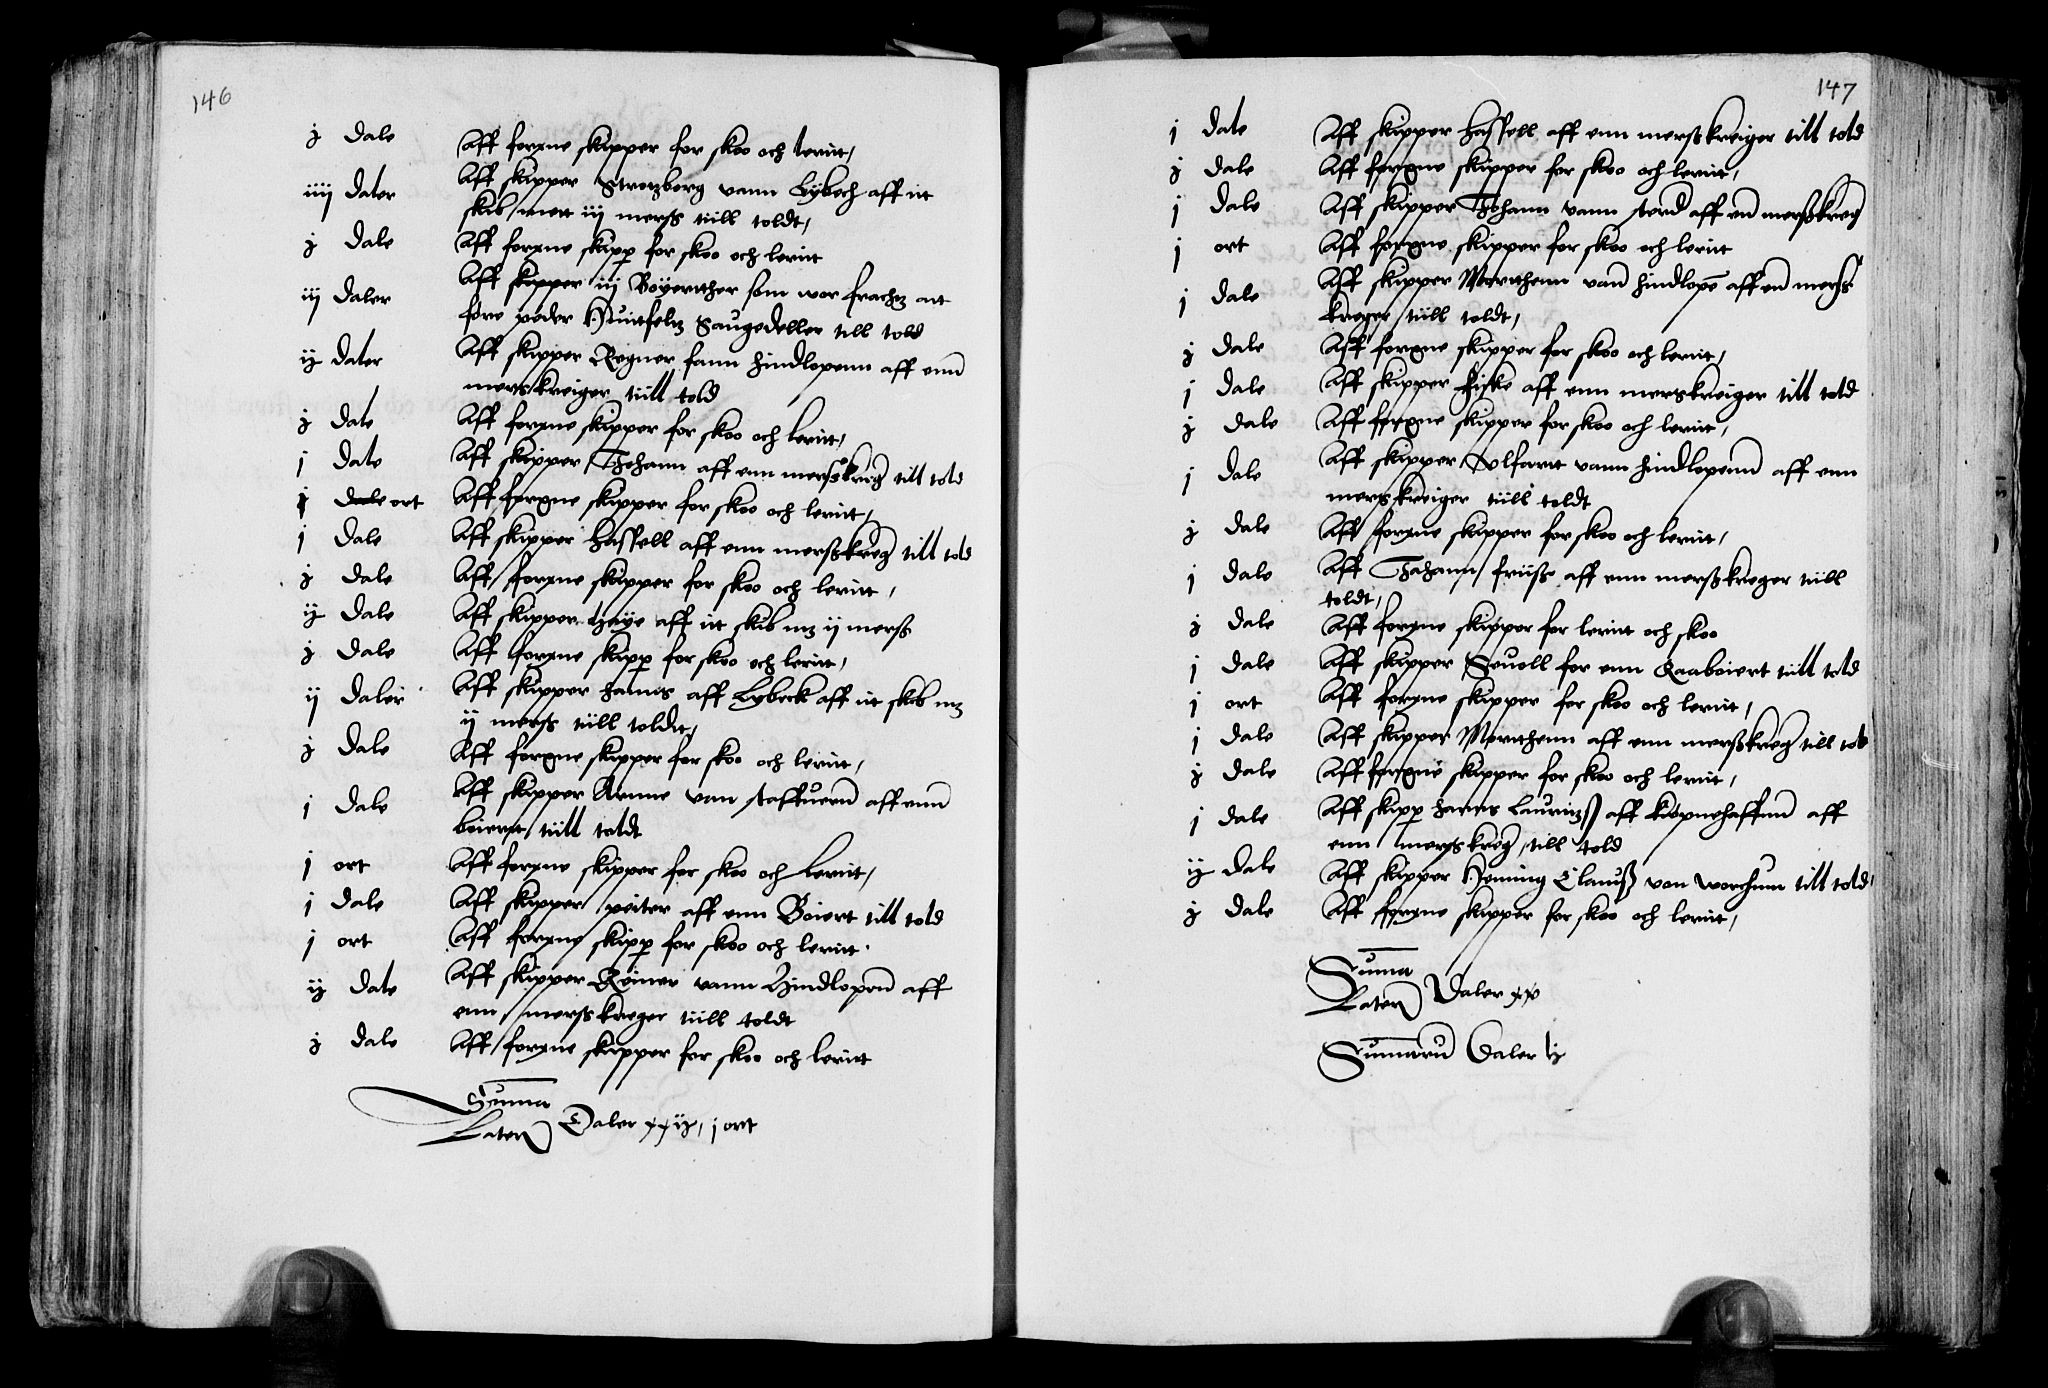 146
j dale Aff forgne skipper for skoo och lerint,
iiij daler Aff skipper Strotzberg vann Lybech aff it
skib mett iij merss tiill toldt,
j dale Aff forgne skipp for skoo och lerint
iij daler Aff skipper iij Boyerther som vor frachtz att
føre peder Huittfeltz Saugedeller till told
ij daler Aff skipper Regner fann Hindlopenn aff enn
merskreiger tiill told
j dale Aff forgne skipper for skoo och lerint,
j dale Aff skipper Johann aff enn merskreg till told
j dale ort Aff forgne skipper for skoo och lerint,
j dale Aff skipper Hassell aff enn merßkreg till told
j dale Aff forgne skipper for skoo och lerint,
ij dale Aff skipper Haye aff iit skib mz ij merß
j dale Aff forgne skipp for skoo och lerint,
ij daler Aff skipper Hanns aff Lybeck aff iit skib mz
ij merss tiill toldtt,
j dale Aff forgne skipper for skoo och lerint,
j dale Aff skipper Arnne van staffuernn aff enn
boiertt tiill toldt
j ort Aff forgne skipper for skoo och lerint,
j dale Aff skipper peiter aff enn Boiert till told
j ort Aff forgne skipp for skoo och lerint
ij dale Aff skipper Reiner vann Hindlopenn aff
enn merskreger tiill toldt
j dale Aff forgne skipper for skoo och lerint
Summa
Lateris Daler xxij, j ort
147
j dale Aff skipper Hassell aff enn merßkreiger till told
j dale Aff forgne skipper for skoo och lerint,
j dale Aff skipper Johann vann sterd aff en merßkreg
j ort Aff forgne skipper for skoo och lerint
j dale Aff skipper Mertthenn vann Hindlope aff en merss
kreger tiill toldt,
j dale Aff forgne skipper for skoo och lerint,
j dale Aff skipper fiske aff enn merskreiger till told
j dale Aff forgne skipper for skoo och lerint,
j dale Aff skipper Vlfartt vann Hindlopenn aff enn
merskreiger tiill toldt
j dale Aff forgne skipper for skoo och lerint,
j dale Aff Johann friiße aff enn merßkreger tiill
toldt,
j dale Aff forgne skipper for lerint och skoo
j dale Aff skipper Seuoll for enn Raaboiert tiill told
j ort Aff forgne skipper for skoo och lerint,
j dale Aff skipper Mertthenn aff enn merßkreg till told
j dale Aff forgne skipper for skoo och lerint,
j dale Aff skipp Hanns Lauritzß aff kiøpnehaffnn aff
enn merskreg, till told
ij dale Aff skipper Heming Clauß von worchum till told,
j dale Aff forgne skipper for skoo och lerint,
Summa
Lateris Daler xv
Summarum Daler lj